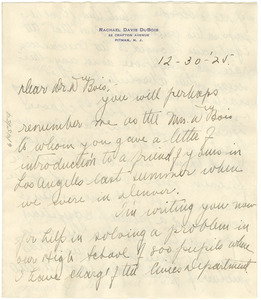 RACHAEL DAVIS DUBOIS
PITMAN, N. J.
12-30-'25.
Dear Dr. Du Bois:
You will perhaps
remember me as the Mrs. Du Bois
to whom you gave a letter of
introduction to a friend of yours in
Los Angeles last summer when
we were in Denver.
I'm writing you now
for help in solving a problem in
our High School of 500 pupils where
I have charge of the Civics Department